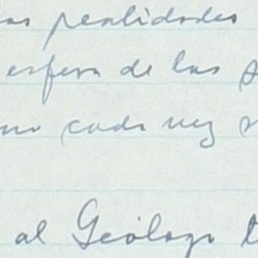 las realidades
esfera de las
cada vez
al Geólogo